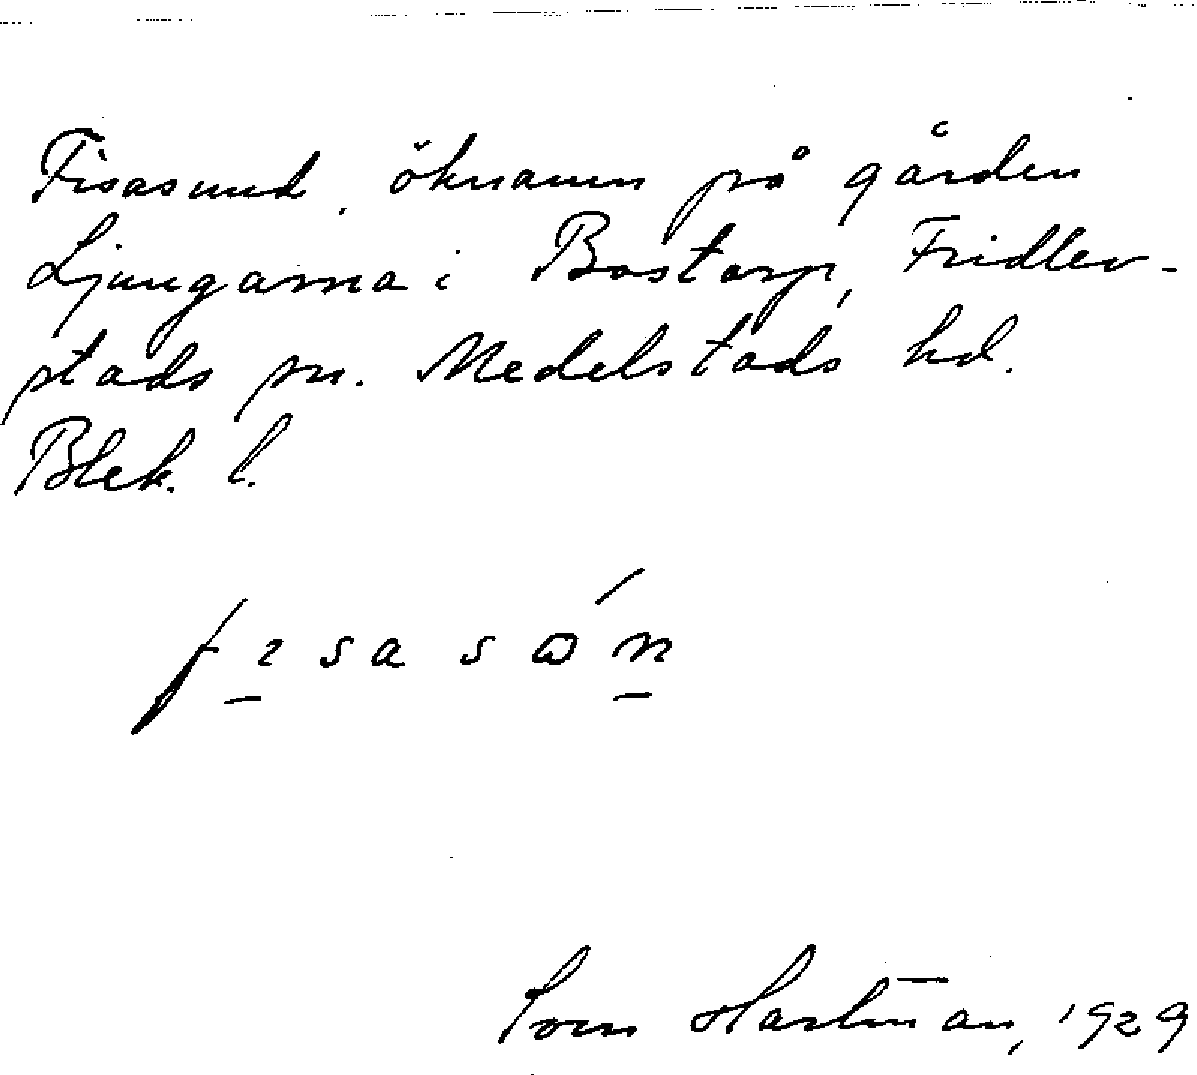 Fisasund, öknamn på gården
Ljungarna i Bostorp, Fridlev-
stads sn. Medelstads hd.
Blek. l.
fısasώn
Hartman, 1929